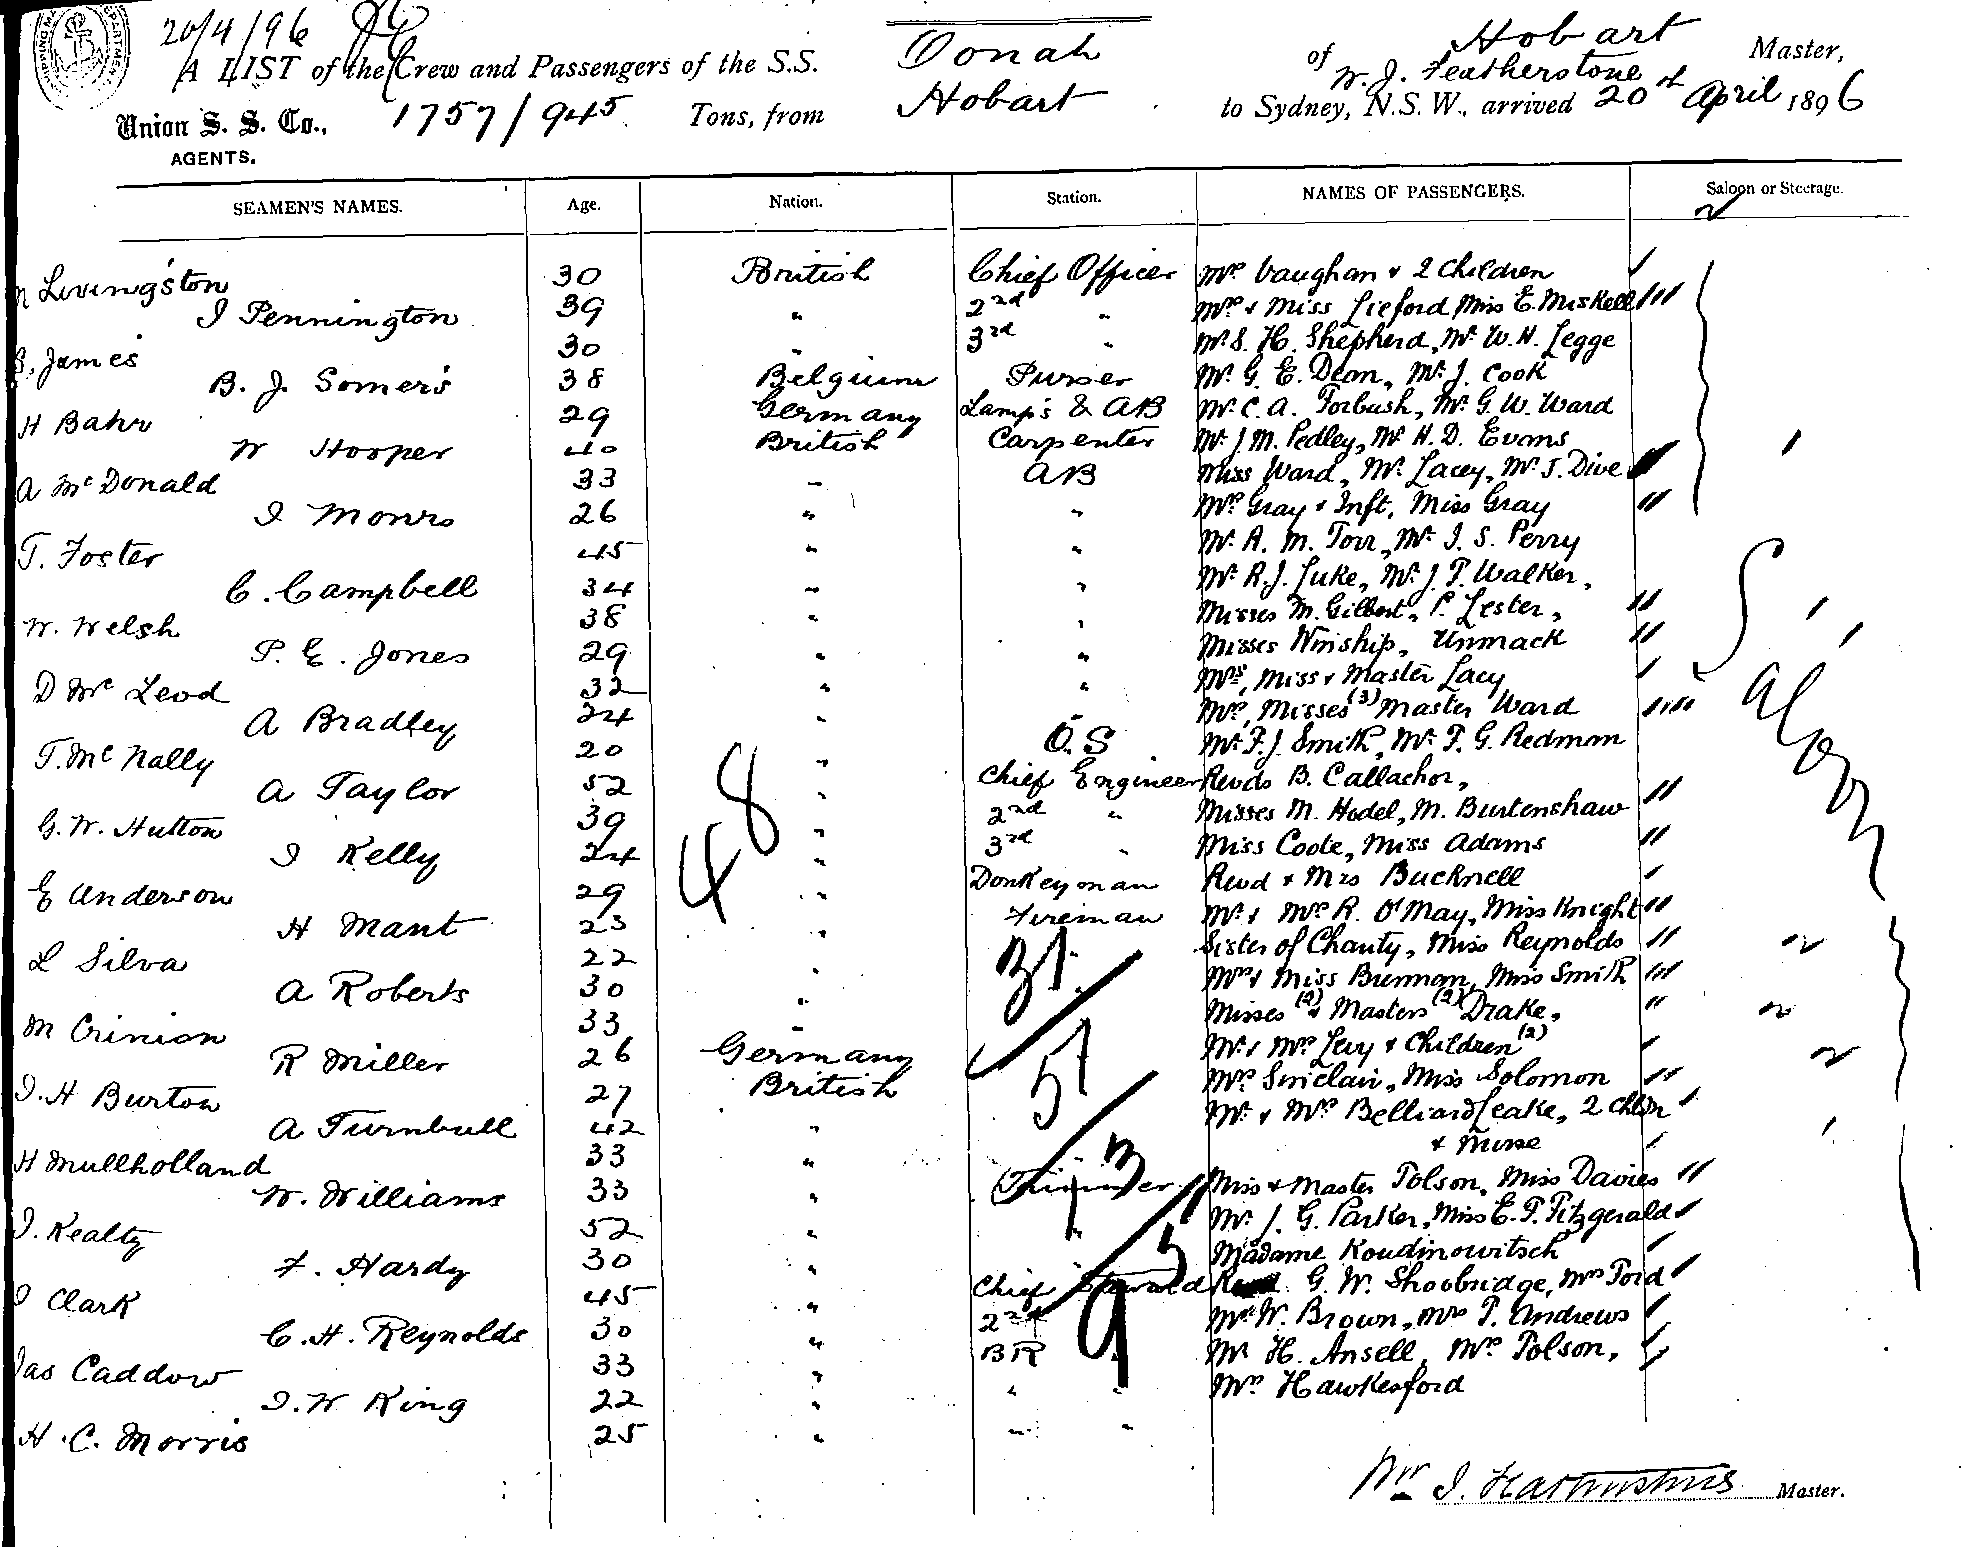 20/4/96
A LIST of the Crew and Passengers of the S.S. Oonah of Hobart
W. J. Featherstone Master,
Union S. S. Co., 1757/945 Tons, from Hobart to Sydney, N.S.W., arrived 20th April 1896
AGENTS.
SEAMEN'S NAMES. Age. Nation. Station. NAMES OF PASSENGERS. Saloon or Steerage.
Livingston 30 British Chief Officer Mrs Vaughan & 2 Children
J Pennington 39 " 2nd " Mrs & Miss Lieford Miss E. Miskell
S. James 30 " 3rd " Mr S. H. Shepherd, Mr W. H. Legge
B. J. Somers 38 Belgium Purser Mr G. E. Dean, Mr J. Cook
H Bahr 29 Germany Lamps & AB Mr C. A. Forbush, Mr G. W. Ward
W Hooper 40 British Carpenter Mr J. M. Pedley, Mr H. D. Evans
A McDonald 33 " AB Miss Ward, Mr Lacey, Mr J. Dive
J Monro 26 " " Mrs Gray & Inft, Miss Gray
T. Foster 45 " " Mr A. M. Torr, Mr J. S. Perry
C. Campbell 34 " " Mr R. J. Luke, Mr J. P. Walker,
W. Welsh 38 " " Misses M. Gilbert, P. Lester,
P. E. Jones 29 " " Misses Winship, Unmack
D McLeod 32 " " Mrs, Miss & Master Lacy
A Bradley 24 " " Mrs, Misses (3) Master Ward
T. McNally 20 " O.S Mr F. J. Smith, Mr P. G. Redman
A Taylor 52 " Chief Engineer Revds B. Callachor,
G. W. Hutton 39 " 2nd " Misses M. Hodel, M. Burtenshaw
J Kelly 24 " 3rd " Miss Coote, Miss Adams
E Anderson 29 " Donkeyman Revd & Mrs Bucknell
H Mant 23 " Fireman Mr & Mrs R. O'May, Miss Knight
L Silva 22 " Sister of Charity, Miss Reynolds
A Roberts 30 " Mrs & Miss Brennan, Miss Smith
M Crinion 33 " Misses (2) & Masters (2) Drake,
R Miller 26 Germany Mr & Mrs Levy & Children (2)
J. H Burton 27 British Mrs Sinclair, Miss Solomon
A Turnbull 42 " Mr & Mrs Belliard Leake, 2 Chldn
& Nurse
H Mullholland 33 "
W. Williams 33 " Trimmer Miss & Master Polson, Miss Davies
J. Kealty 52 " " Mr J. G. Parker, Miss E. P. Fitzgerald
F. Hardy 30 " Madame Koudinowitsch
J Clark 45 " Chief Steward G. W. Shoobridge, Mrs Ford
C. H. Reynolds 30 " 2nd Mr W. Brown, Mrs P. Andrews
Jas Caddow 33 " BR Mr H. Ansell, Mrs Polson,
J. W King 22 " " " Mrs Hawkesford
H. C. Morris 25 " " "
48
31
51
13
9
Saloon
Wm J. Featherstone Master.